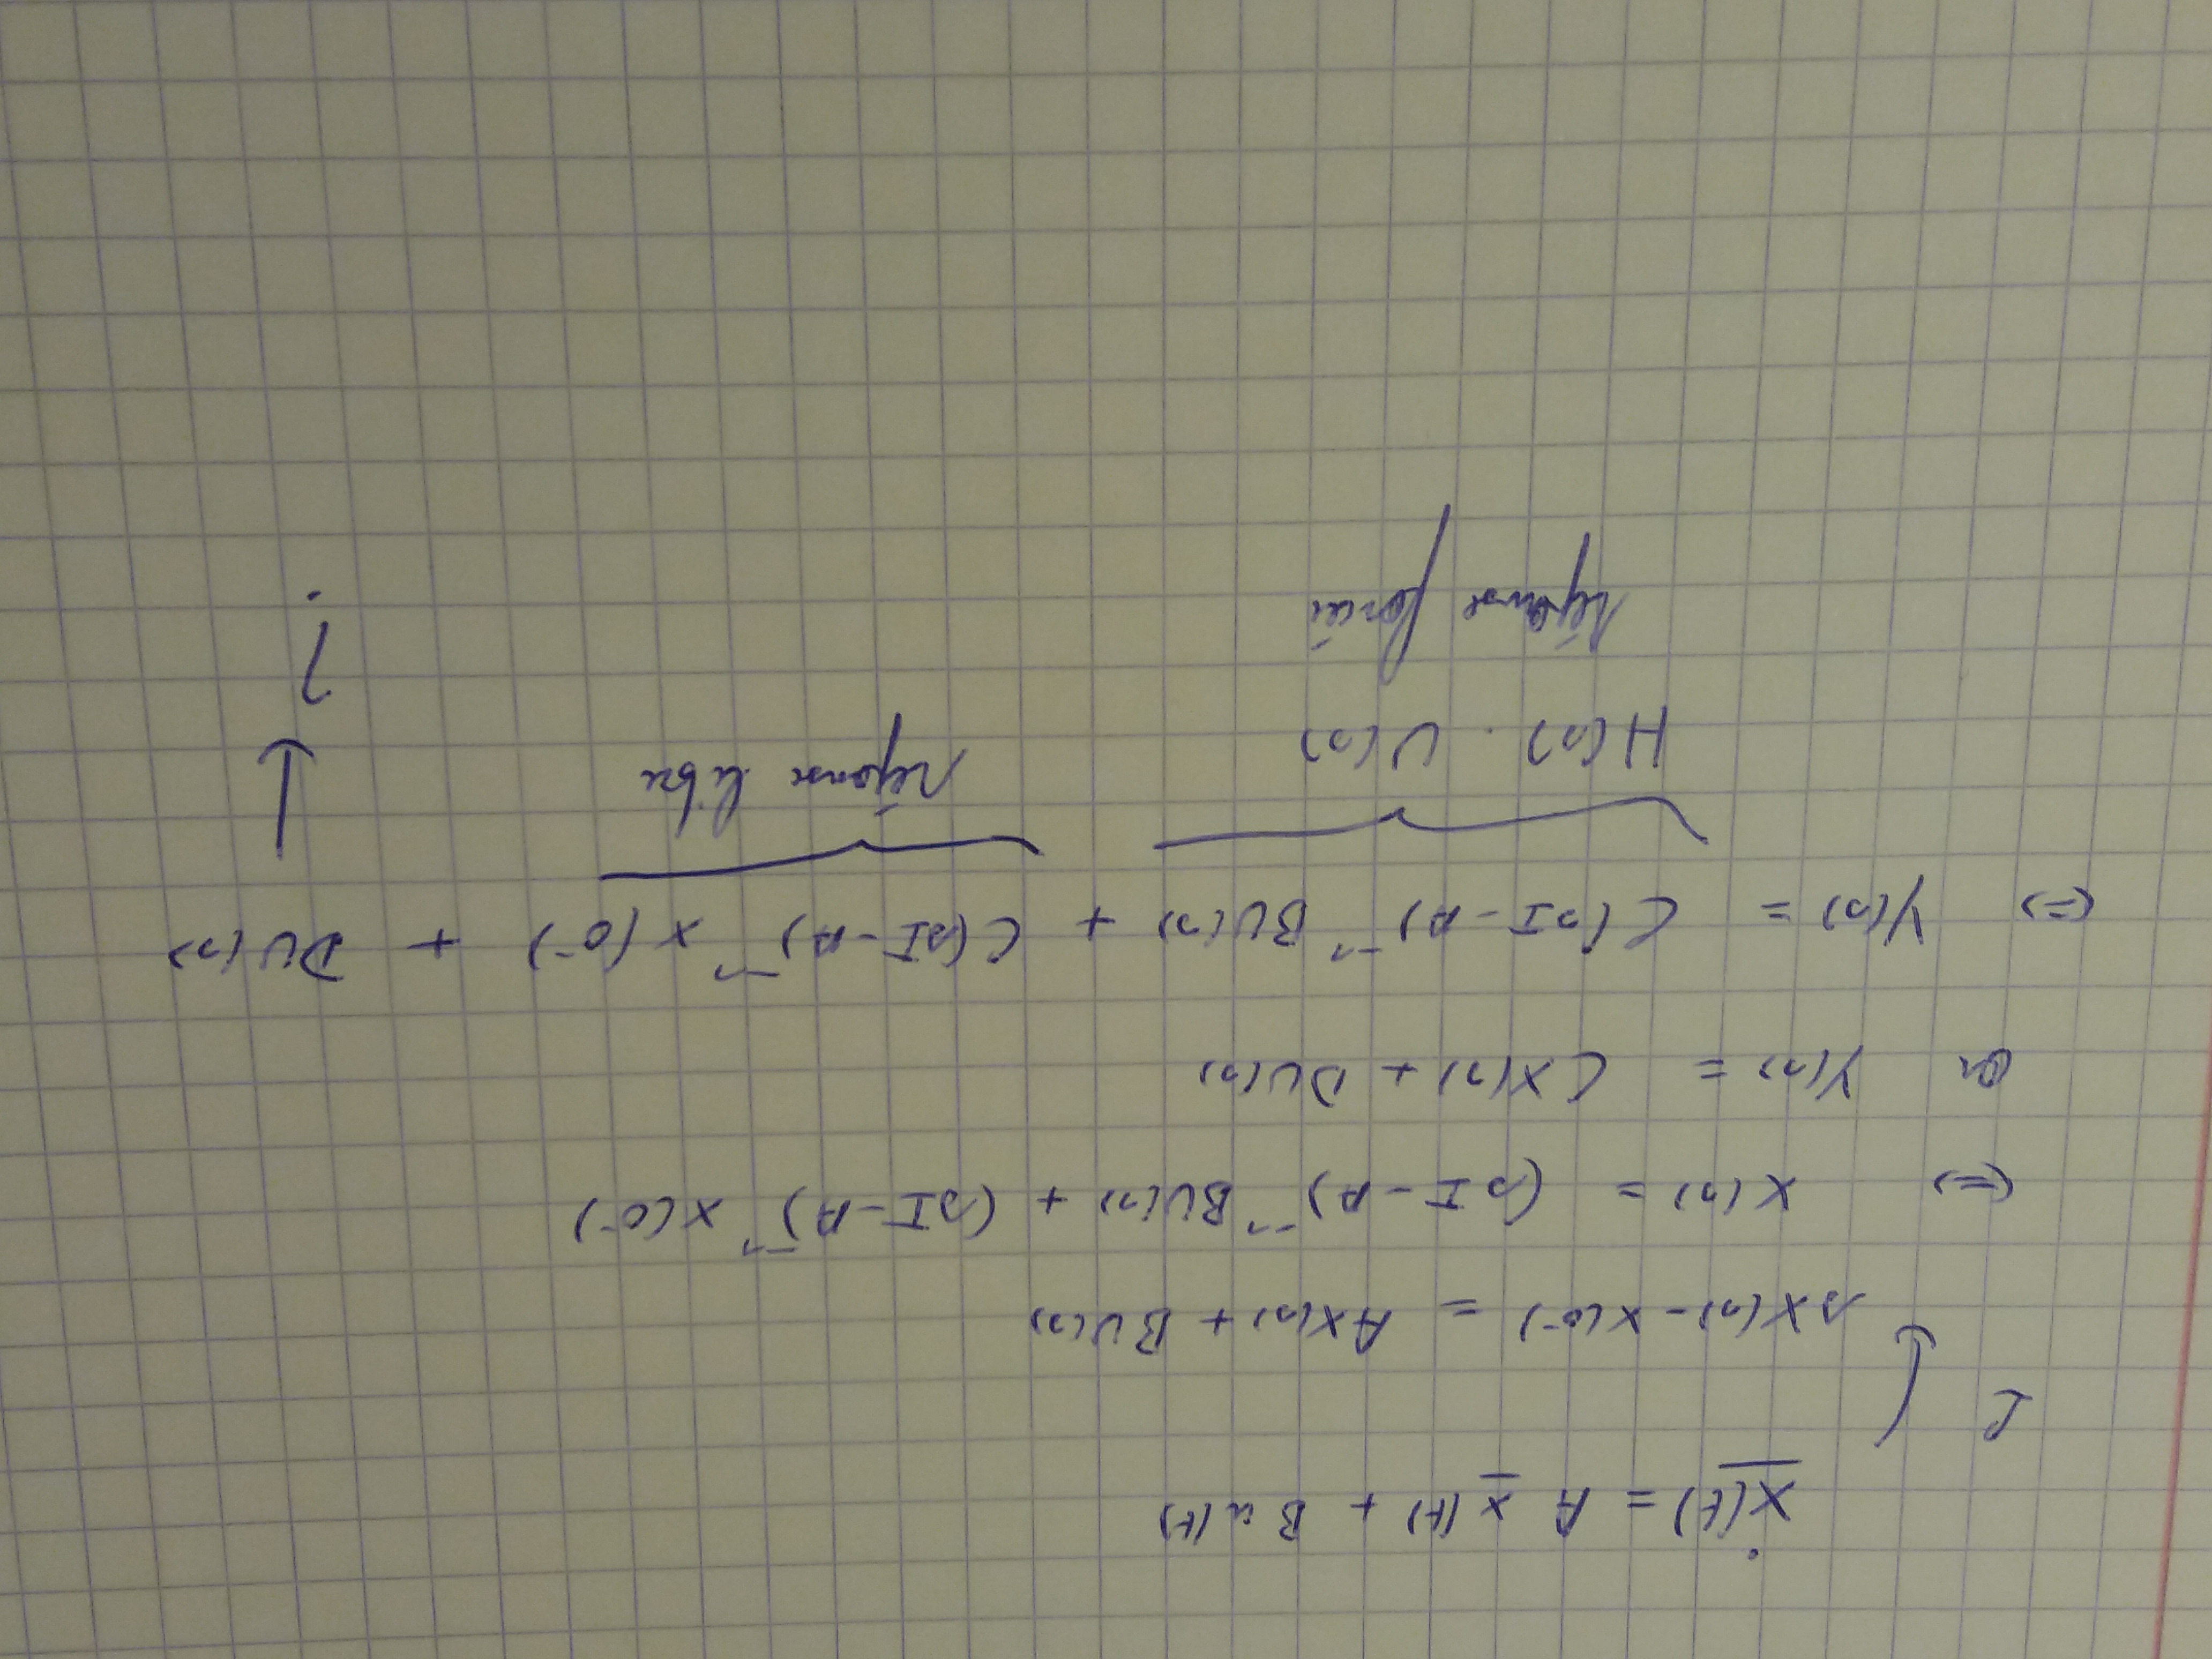 ẋ(t) = A x(t) + B u(t)
L
sX(s) - X(0⁻) = AX(s) + BU(s)
(=) X(s) = (sI - A)⁻¹ BU(s) + (sI - A)⁻¹ X(0⁻)
or Y(s) = CX(s) + DU(s)
(=) Y(s) = C(sI - A)⁻¹ BU(s) + C(sI - A)⁻¹ X(0⁻) + DU(s)
H(s) . U(s) réponse libre
réponse forcée ?